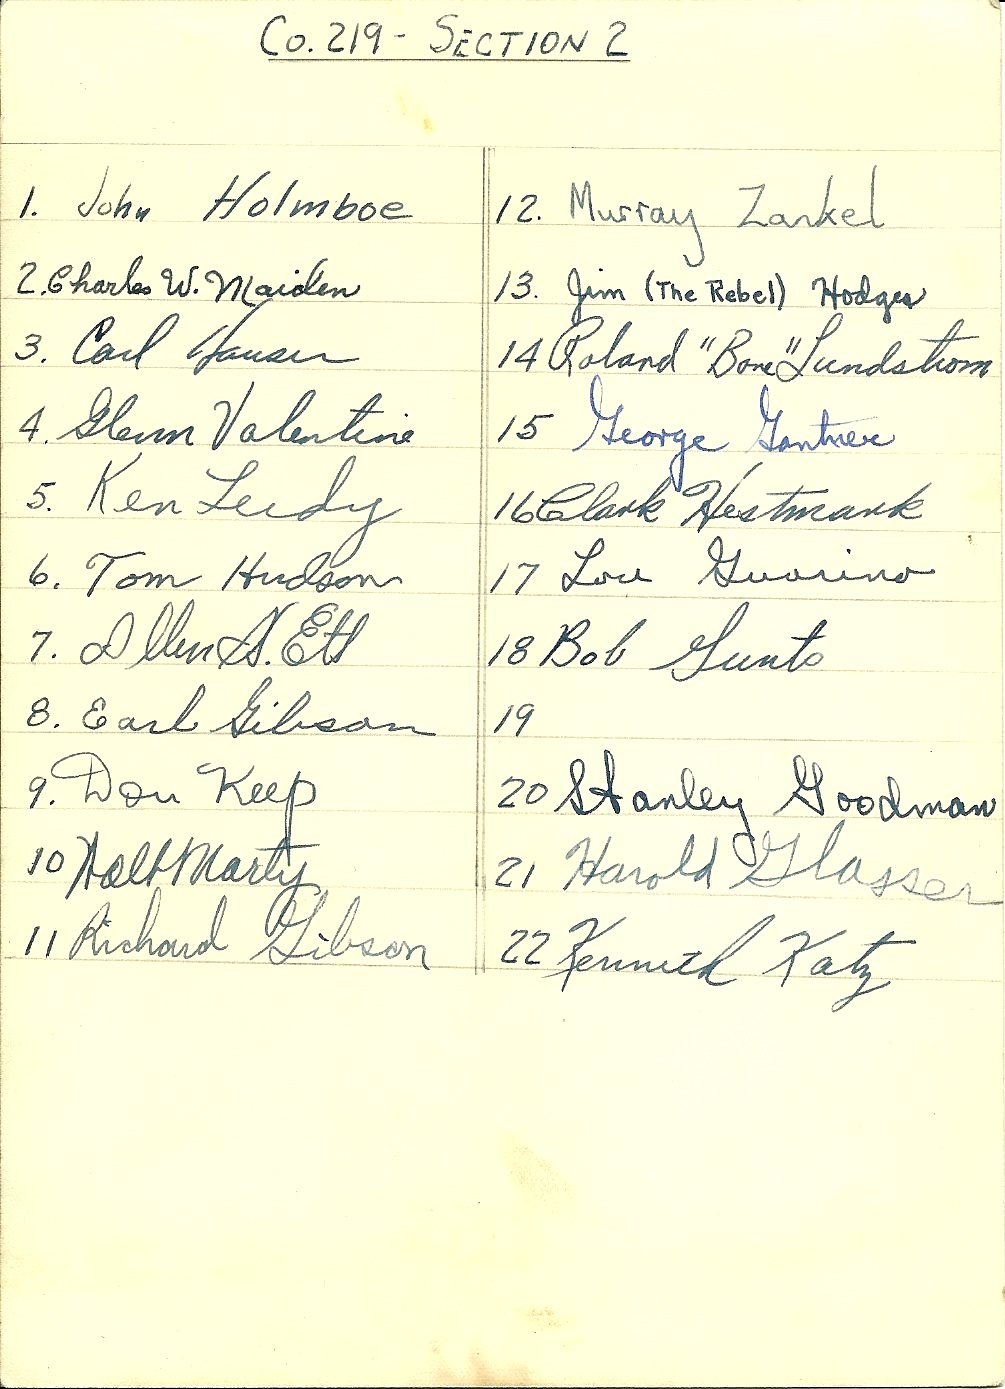 Co. 219 - SECTION 2
1. John Holmboe
2. Charles W. Maiden
3. Carl Hauser
4. Glenn Valentine
5. Ken Leidy
6. Tom Hudson
7. Allen H. Etl
8. Earl Gibson
9. Don Keep
10 Walt Marty
11 Richard Gibson
12. Murray Zankel
13. Jim (The Rebel) Hodges
14 Roland "Bone" Lundstrom
15 George Gantner
16 Clark Hestmark
17 Lou Guarino
18 Bob Gunto
19
20 Stanley Goodman
21 Harold Glasser
22 Kenneth Katz